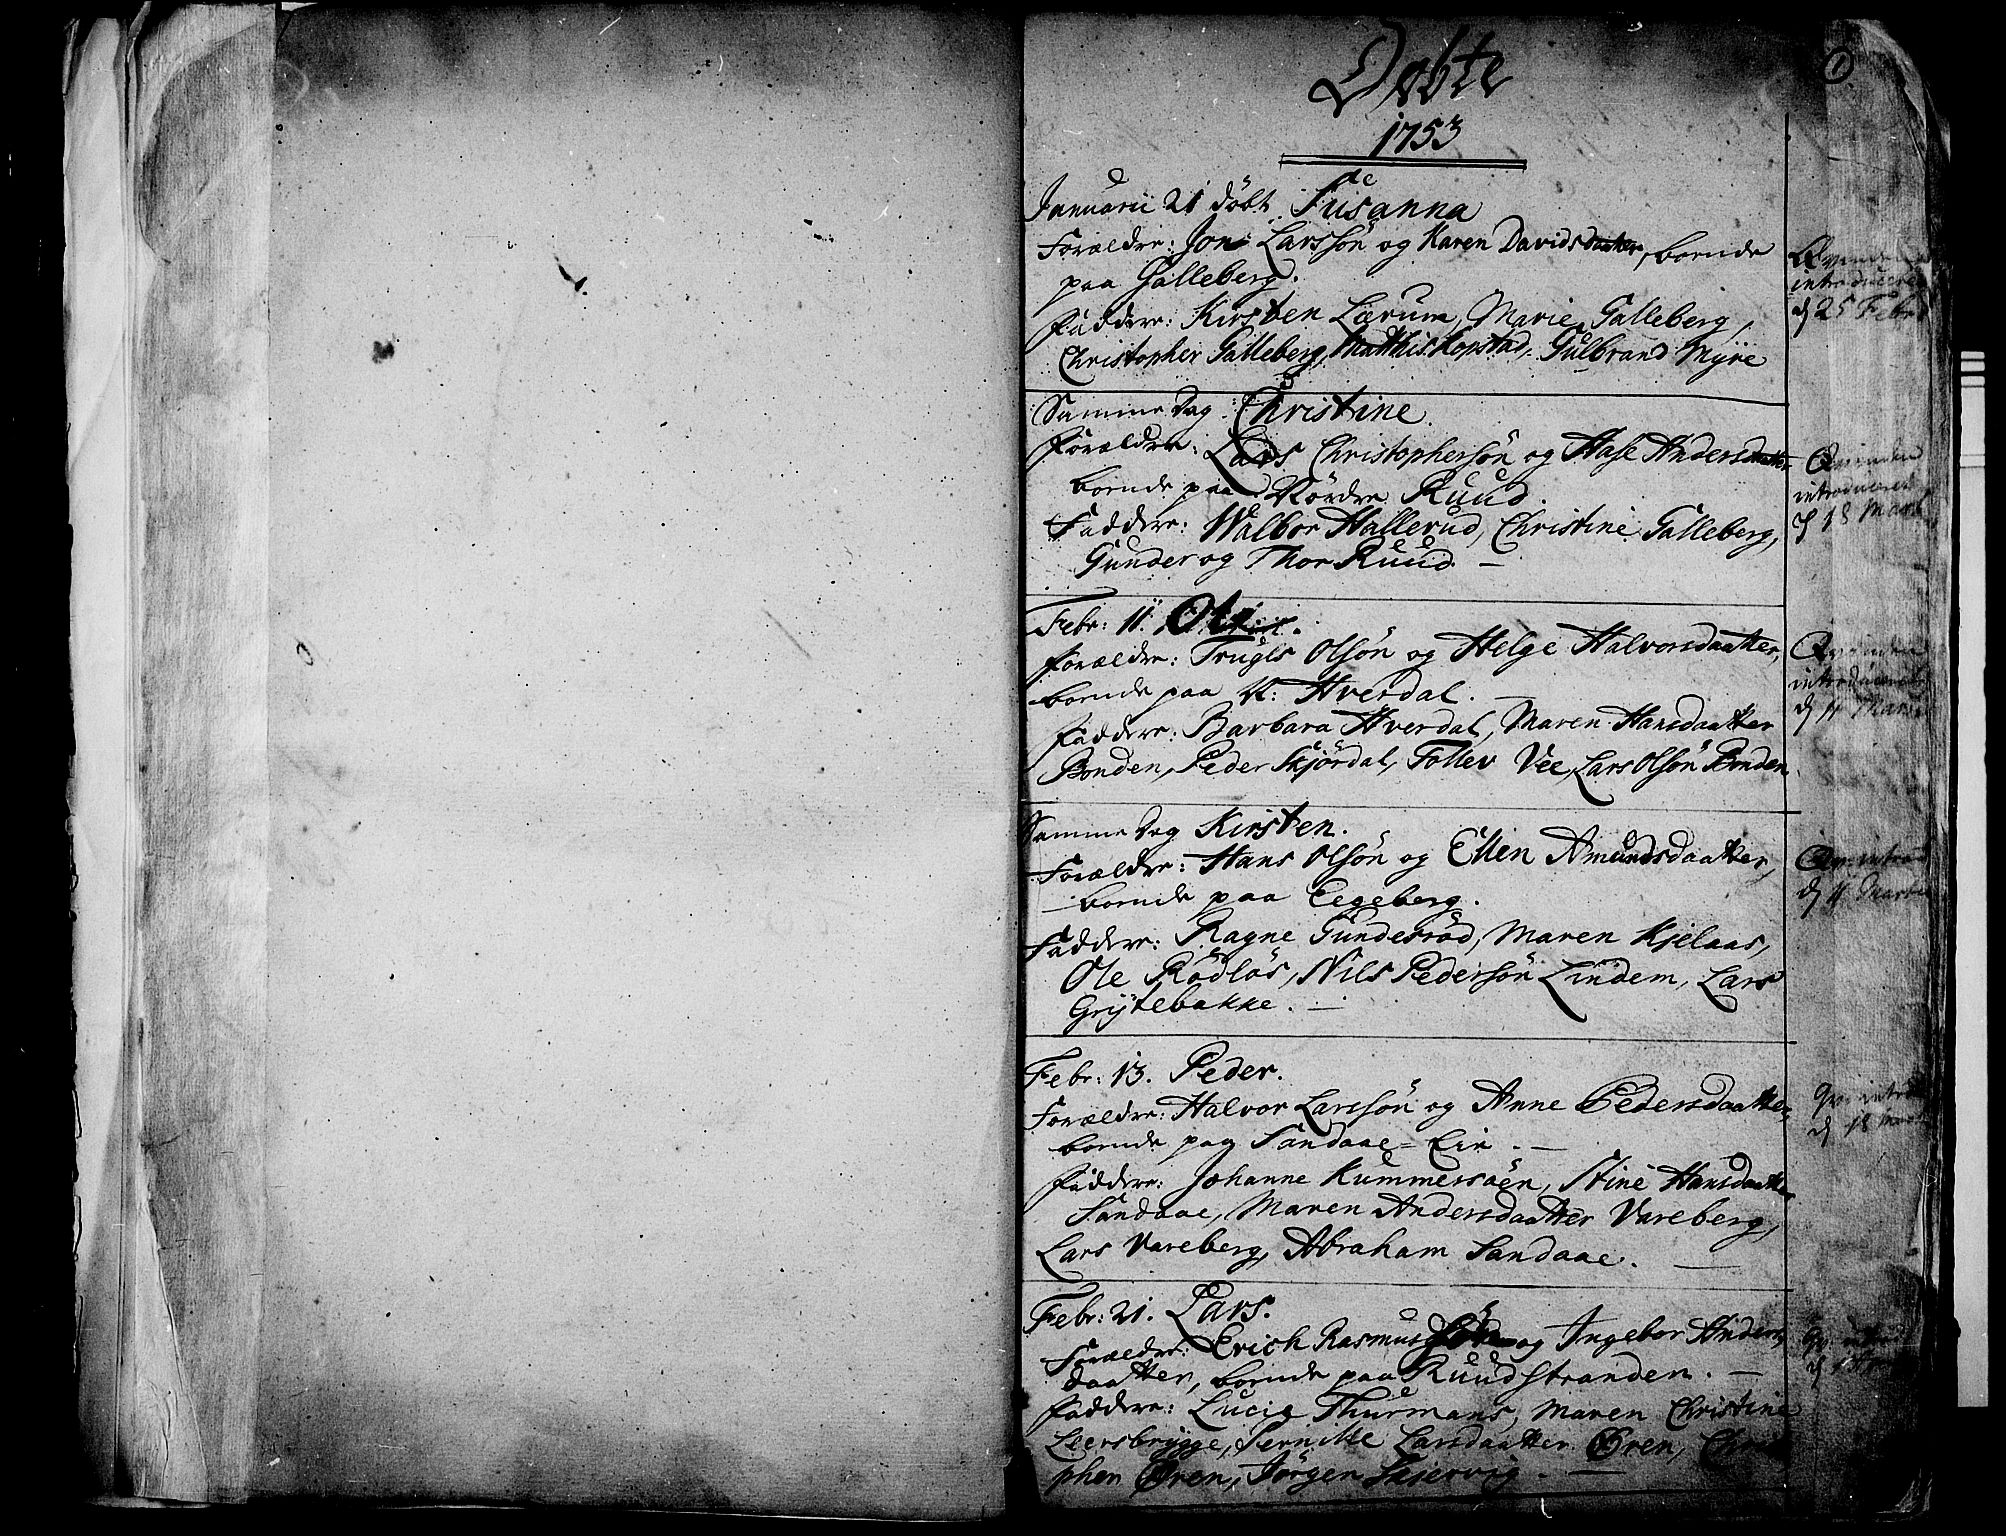 Døbte
1
1753
Januarii 21 døbt Susanna
Forældre: Jon Larssøn og Karen Davidsdaatter, boende
paa Galleberg.
Faddere: Kirsten Lærum, Marie Galleberg,
Christopher Galleberg, Matthis Kopstad, Gulbrand Myre
Qvinden
introduceret
d 25 Febr
Samme Dag: Christine.
Forældre: Lars Christophersøn og Aase Andersdaatter
boende paa Nordre Ruud.
Faddere: Walbor Hallerud, Christine Galleberg,
Gunder og Thor Ruud. —
Qvinden
introduceret
d 18 Martii
Febr: 11. Ole.
Forældre: Trugls Olsøn og Helge Halvorsdaatter,
boende paa N: Hverdal. —
Faddere: Barbara Hverdal, Maren Hansdaatter
Bonden, Peder Skjørdal, Tollev Vee, Lars Olsøn Bonden
Qvinden
introduceret
d 11 Martii
Samme Dag Kirsten.
Forældre: Hans Olsøn og Ellen Amundsdaatter,
boende paa Eegeberg.
Faddere: Ragne Gunderød, Maren Kjelaas,
Ole Rødløs, Nils Pedersøn Lindem, Lars
Grytebakke. —
Qv. introd
d 11 Martii
Febr: 13. Peder.
Forældre: Halvor Larssøn og Anne Pedersdaatter
boende paa Sandaae-Eie. —
Faddere: Johanne Kummersøen, Stine Hansdaatter
Sandaae, Maren Andersdaatter Vareberg,
Lars Vareberg, Abraham Sandaae. —
Qv. introd
d 18 Mart
Febr: 21. Lars.
Forældre: Erich Rasmussøn og Ingebor Anders
daatter, boende paa Ruudstranden. —
Faddere: Lucia Thurmans, Maren Christine
Leersbrygge, Pernille Larsdaatter Øren, Christo
pher Øren, Jørgen Skiervig. —
Qv. introd